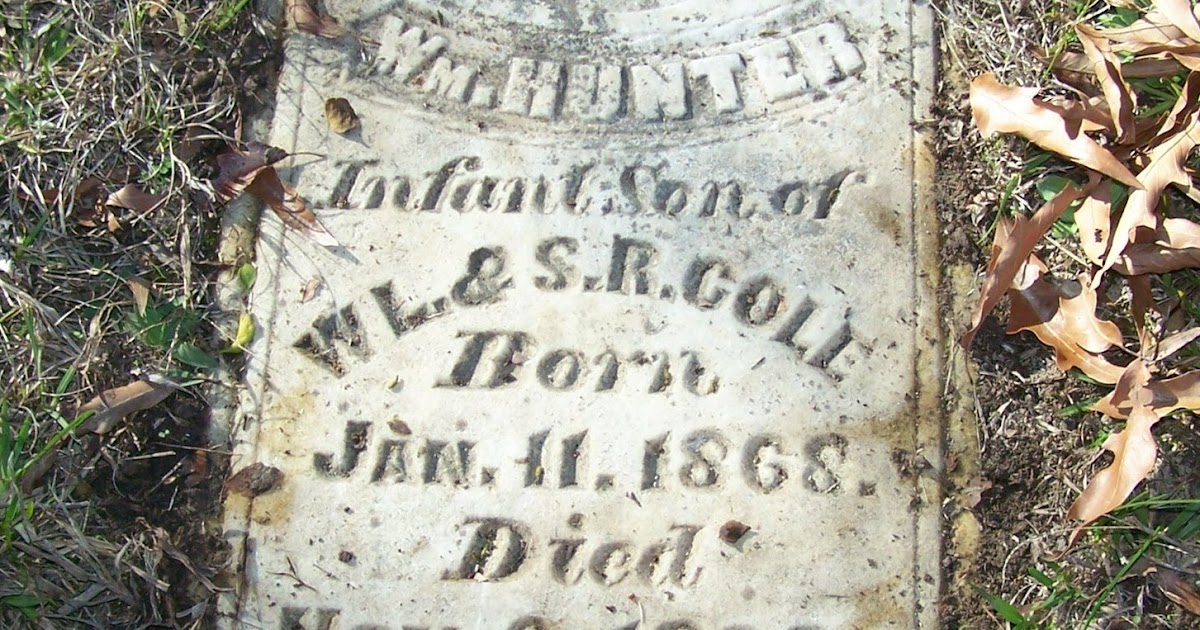 WM. HUNTER
Infant Son of
W L. & S. R. COLE
Born
JAN. 11. 1868.
Died